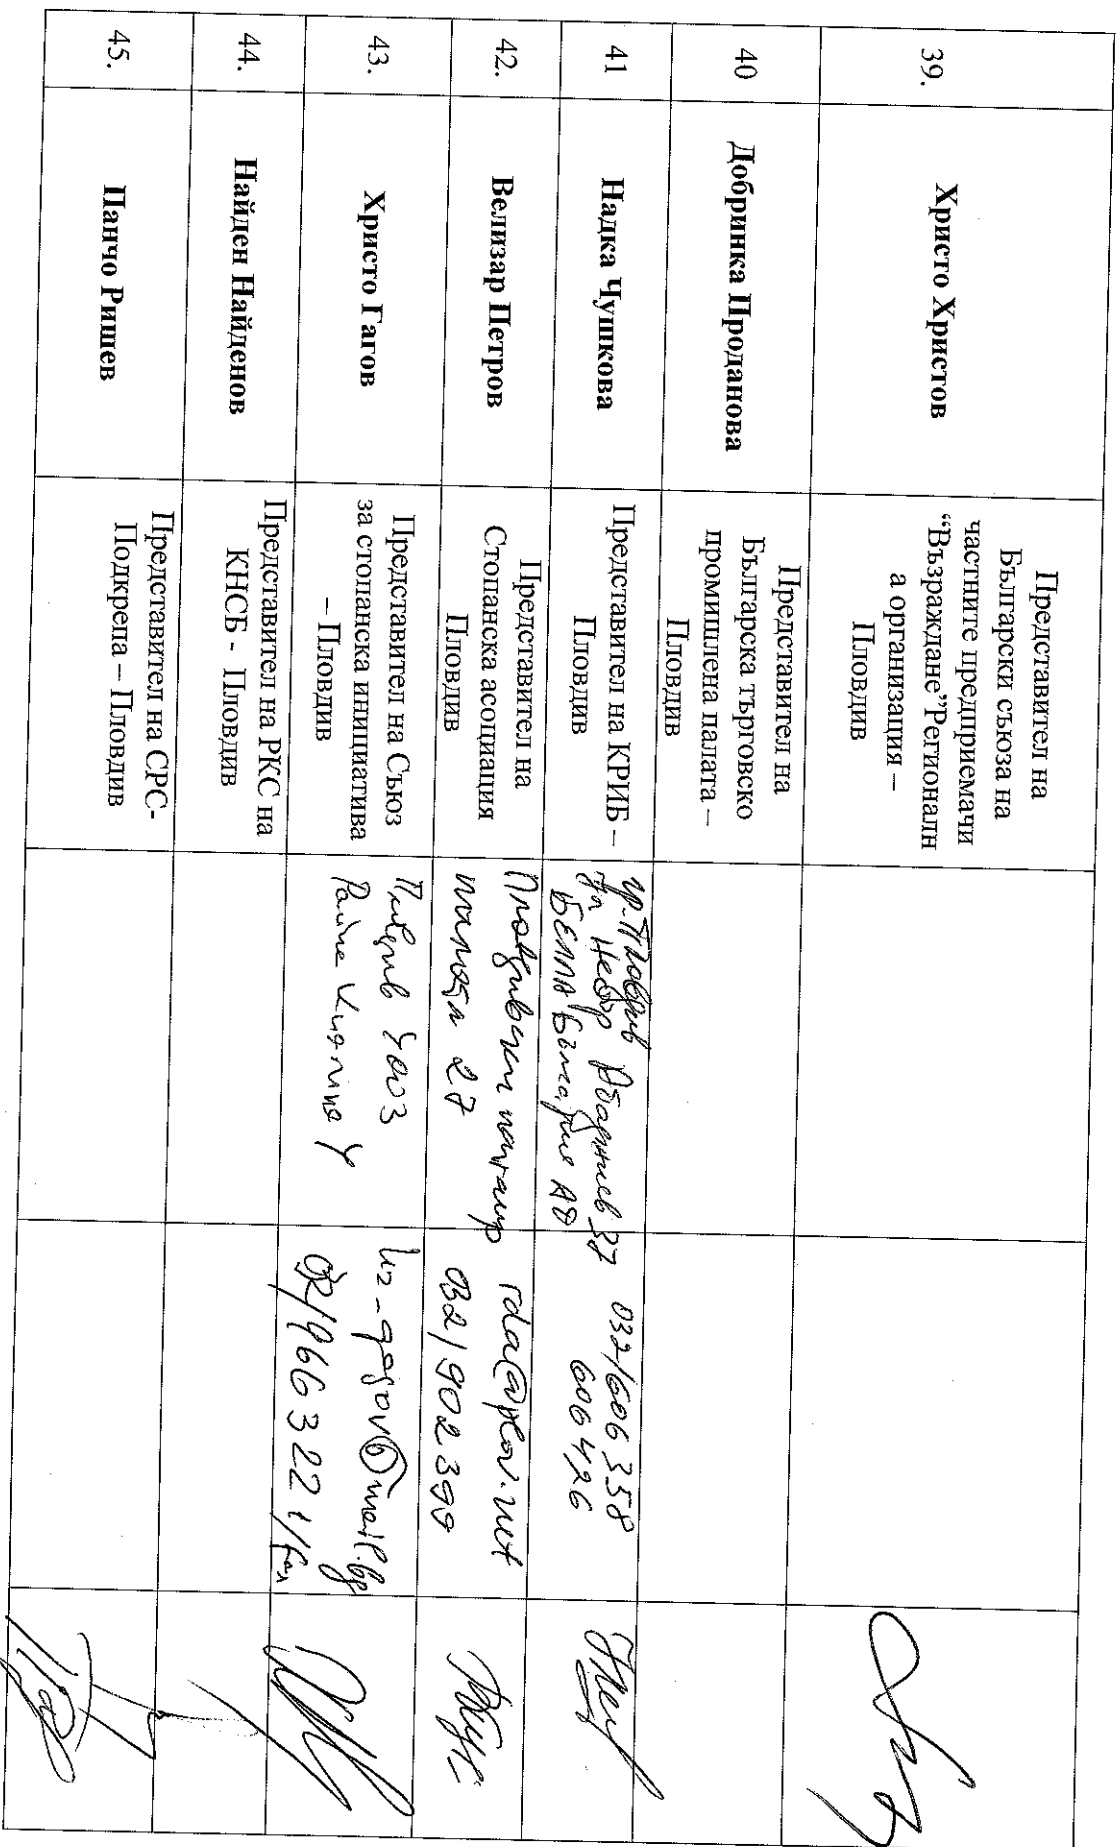 39.
Христо Христов
Представител на
Български съюза на
частните предприемачи
“Възраждане”Регионалн
а организация –
Пловдив
40
Добринка Проданова
Представител на
Българска търговско
промишлена палата –
Пловдив
41
Надка Чушкова
Представител на КРИБ –
Пловдив
гр. Пловдив
Недор 37
БЕЛЛА България АД
032/606 358
606 426
42.
Велизар Петров
Представител на
Стопанска асоциация
Пловдив
Пловдивски панаир
палата 27
rda@plov.net
032/902 399
43.
Христо Гагов
Представител на Съюз
за стопанска инициатива
– Пловдив
Пловдив 4003
Райна Княгиня
hr-gagov@mail.bg
44.
Найден Найденов
Представител на РКС на
КНСБ - Пловдив
45.
Панчо Ришев
Представител на СРС-
Подкрепа – Пловдив